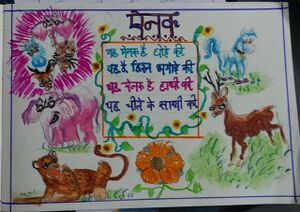 मेनका
यह मेनका है घोड़े की
यह है हिरन भगोड़े की
यह मेनका है हाथी की
यह चीते के साथी की